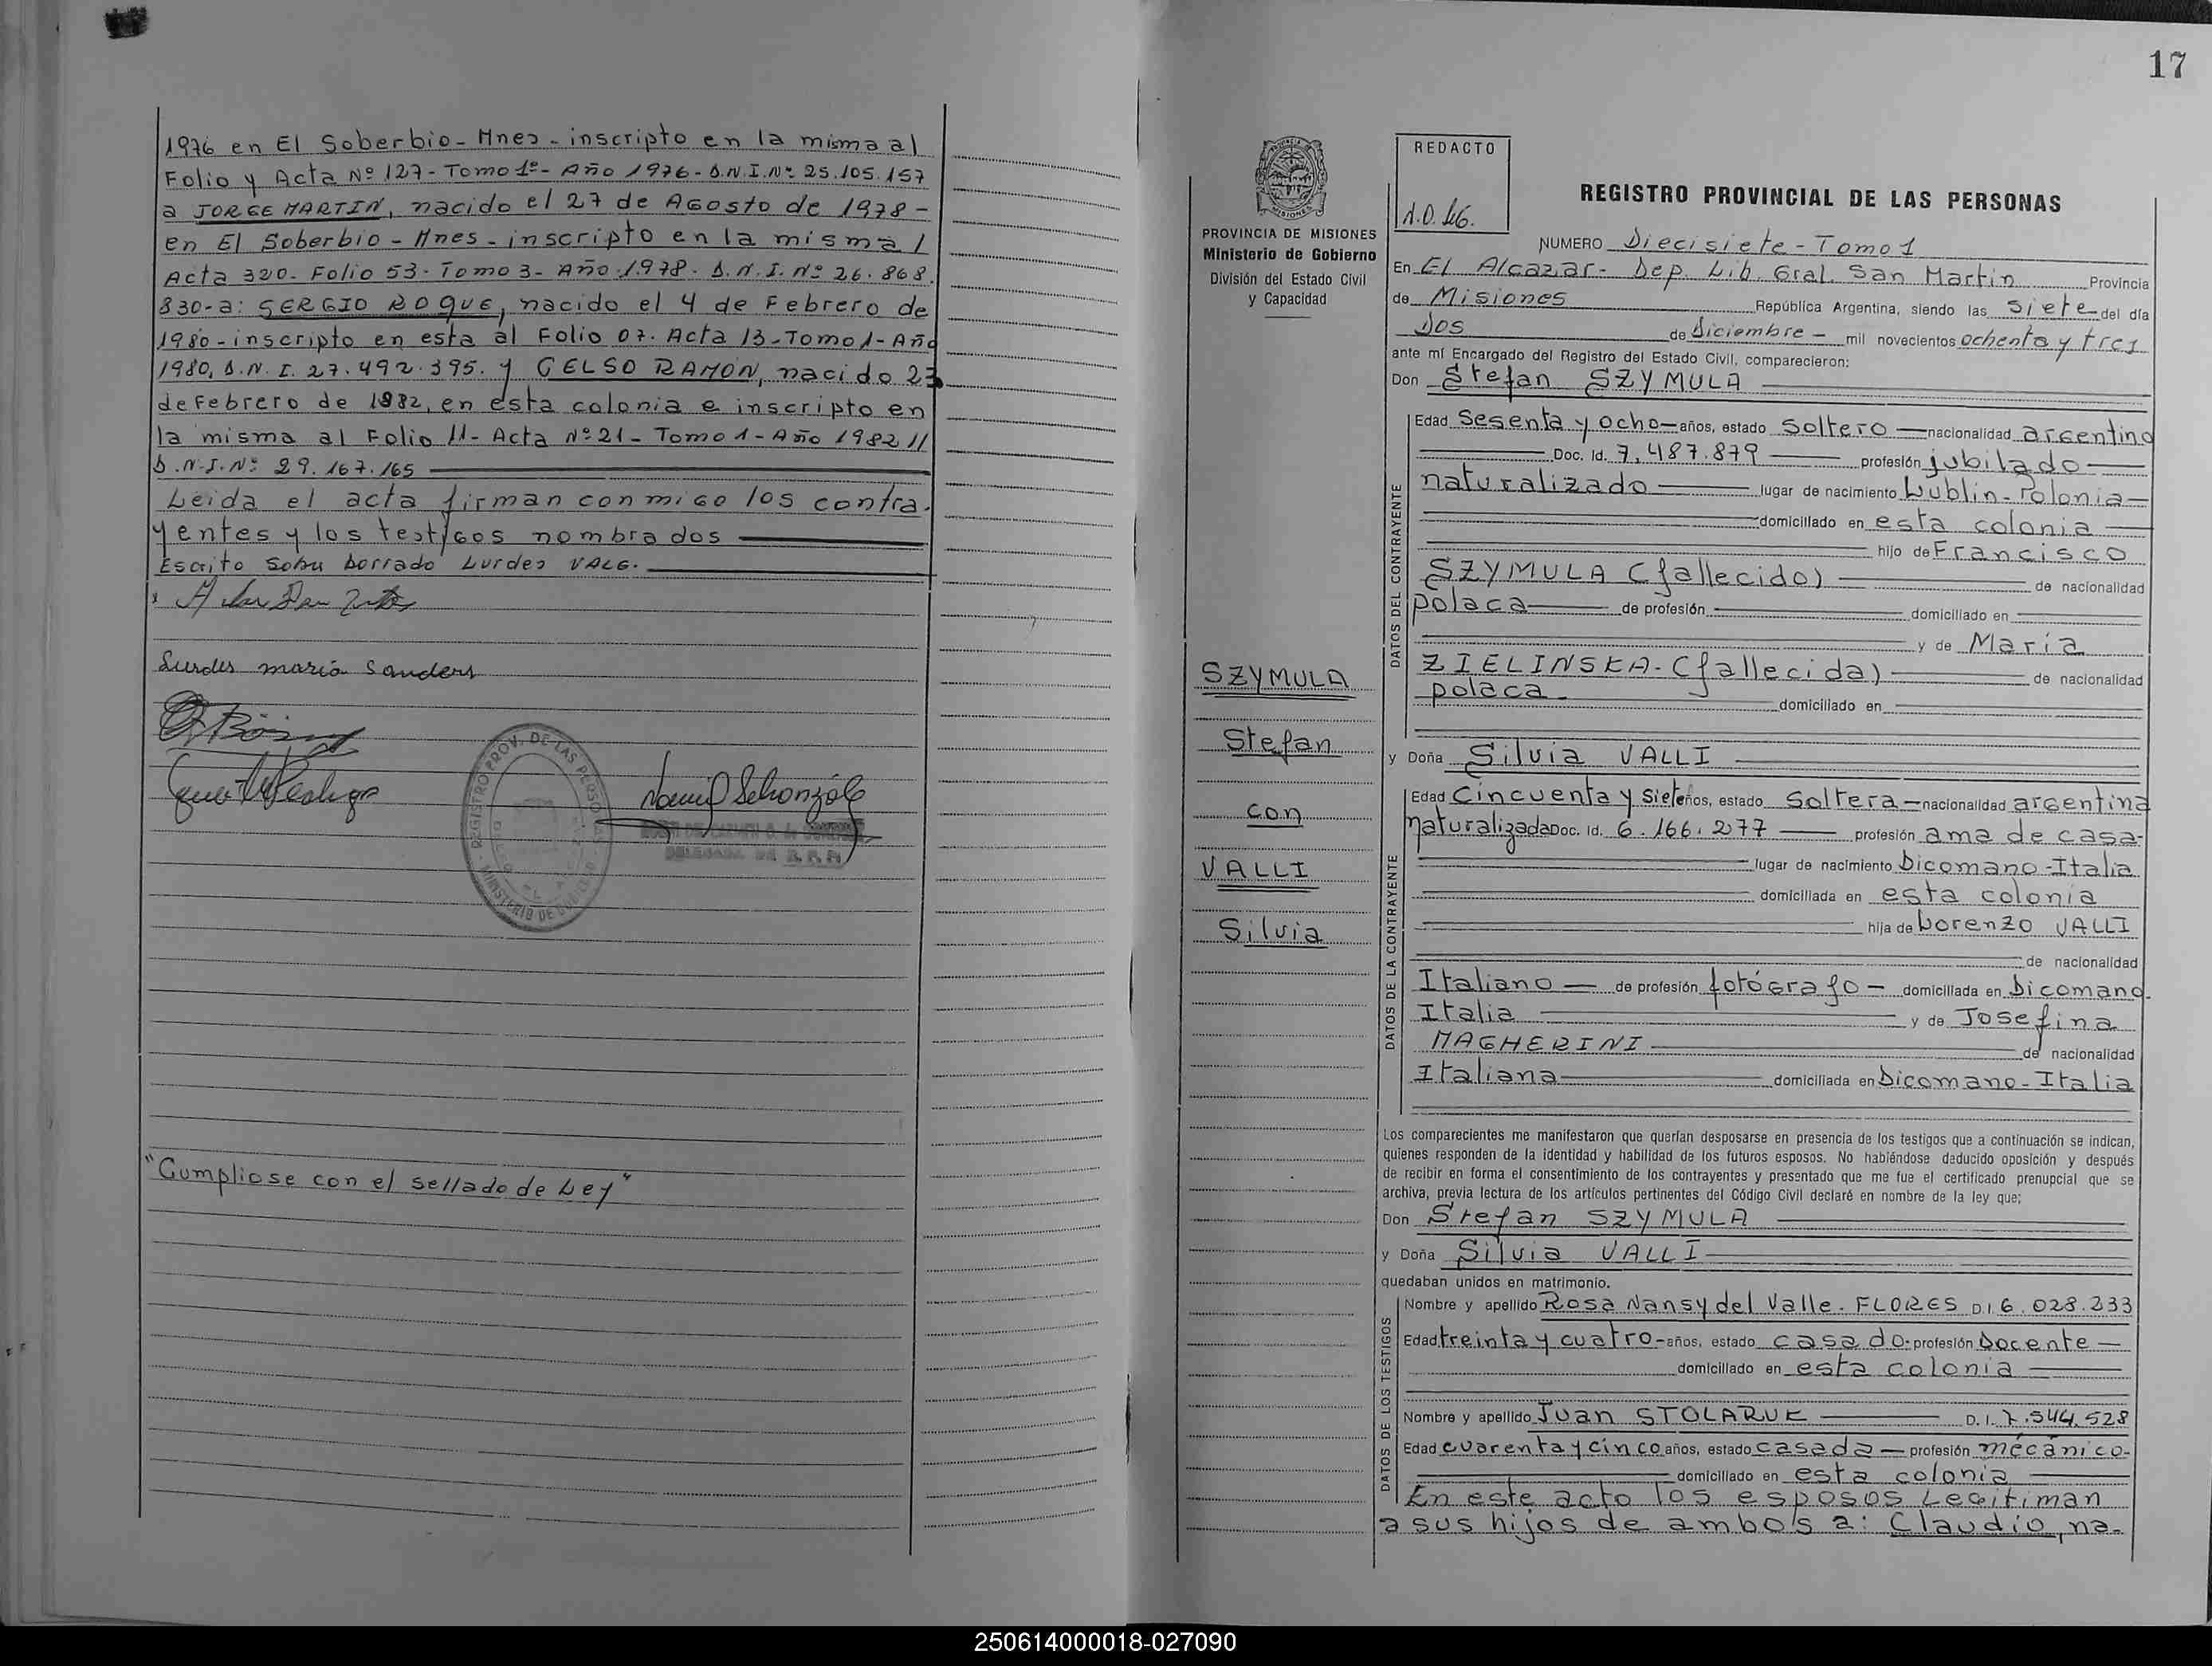 1976 en El Soberbio - Mnes - inscripto en la misma al
Folio y Acta Nº 127 - Tomo 1º - Año 1976 - D.N.I. Nº 25.105.157
a JORGE MARTIN, nacido el 27 de Agosto de 1978 -
en El Soberbio - Mnes - inscripto en la misma /
Acta 320 - Folio 53 - Tomo 3 - Año 1978 - D.N.I. Nº 26.868.
830 - a: SERGIO ROQUE, nacido el 4 de Febrero de
1980 - inscripto en esta al Folio 07. Acta 13 - Tomo 1 - Año
1980, D.N.I. 27.492.395. y CELSO RAMON, nacido 23
de Febrero de 1982, en esta colonia e inscripto en
la misma al Folio 11 - Acta Nº 21 - Tomo 1 - Año 1982 //
D.N.I. Nº 29.167.165
Leida el acta firman conmigo los contra-
yentes y los testigos nombrados
Escrito sobre borrado Lurdes VALE.
Lurdes maria Sanders
REGISTRO PROV. DE LAS PERSONAS
MINISTERIO DE GOBIERNO
DELEGADA DE R. P. P.
"Cumpliose con el sellado de Ley"
17
PROVINCIA DE MISIONES
Ministerio de Gobierno
División del Estado Civil
y Capacidad
SZYMULA
Stefan
con
VALLI
Silvia
REDACTO
REGISTRO PROVINCIAL DE LAS PERSONAS
NUMERO Diecisiete - Tomo 1
En El Alcazar - Dep. Lib. Gral. San Martin Provincia
de Misiones República Argentina, siendo las siete del día
Dos de Diciembre - mil novecientos ochenta y tres
ante mí Encargado del Registro del Estado Civil, comparecieron:
Don Stefan SZYMULA
DATOS DEL CONTRAYENTE
Edad Sesenta y ocho años, estado Soltero nacionalidad argentino
Doc. Id. 7.487.879 profesión jubilado
naturalizado lugar de nacimiento Lublin - Polonia
domiciliado en esta colonia
hijo de Francisco
SZYMULA (fallecido) de nacionalidad
polaca de profesión domiciliado en
y de Maria
ZIELINSKA - (fallecida) de nacionalidad
polaca domiciliado en
y Doña Silvia VALLI
DATOS DE LA CONTRAYENTE
Edad Cincuenta y Siete años, estado Soltera nacionalidad argentina
naturalizada Doc. Id. 6.166.277 profesión ama de casa-
lugar de nacimiento Dicomano - Italia
domiciliada en esta colonia
hija de Lorenzo VALLI
de nacionalidad
Italiano de profesión fotógrafo domiciliada en Dicomano-
Italia y de Josefina
MAGHERINI de nacionalidad
Italiana domiciliada en Dicomano - Italia
Los comparecientes me manifestaron que querían desposarse en presencia de los testigos que a continuación se indican,
quienes responden de la identidad y habilidad de los futuros esposos. No habiéndose deducido oposición y después
de recibir en forma el consentimiento de los contrayentes y presentado que me fue el certificado prenupcial que se
archiva, previa lectura de los artículos pertinentes del Código Civil declaré en nombre de la ley que;
Don Stefan SZYMULA
y Doña Silvia VALLI
quedaban unidos en matrimonio.
DATOS DE LOS TESTIGOS
Nombre y apellido Rosa Nansy del Valle - FLORES D.I. 6.028.233
Edad treinta y cuatro años, estado casado profesión Docente
domiciliado en esta colonia
Nombre y apellido Juan STOLARUK D.I. 7.544.528
Edad cuarenta y cinco años, estado casada profesión mecánico-
domiciliado en esta colonia
En este acto los esposos Legitiman
a sus hijos de ambos a: Claudio, na-
250614000018-027090